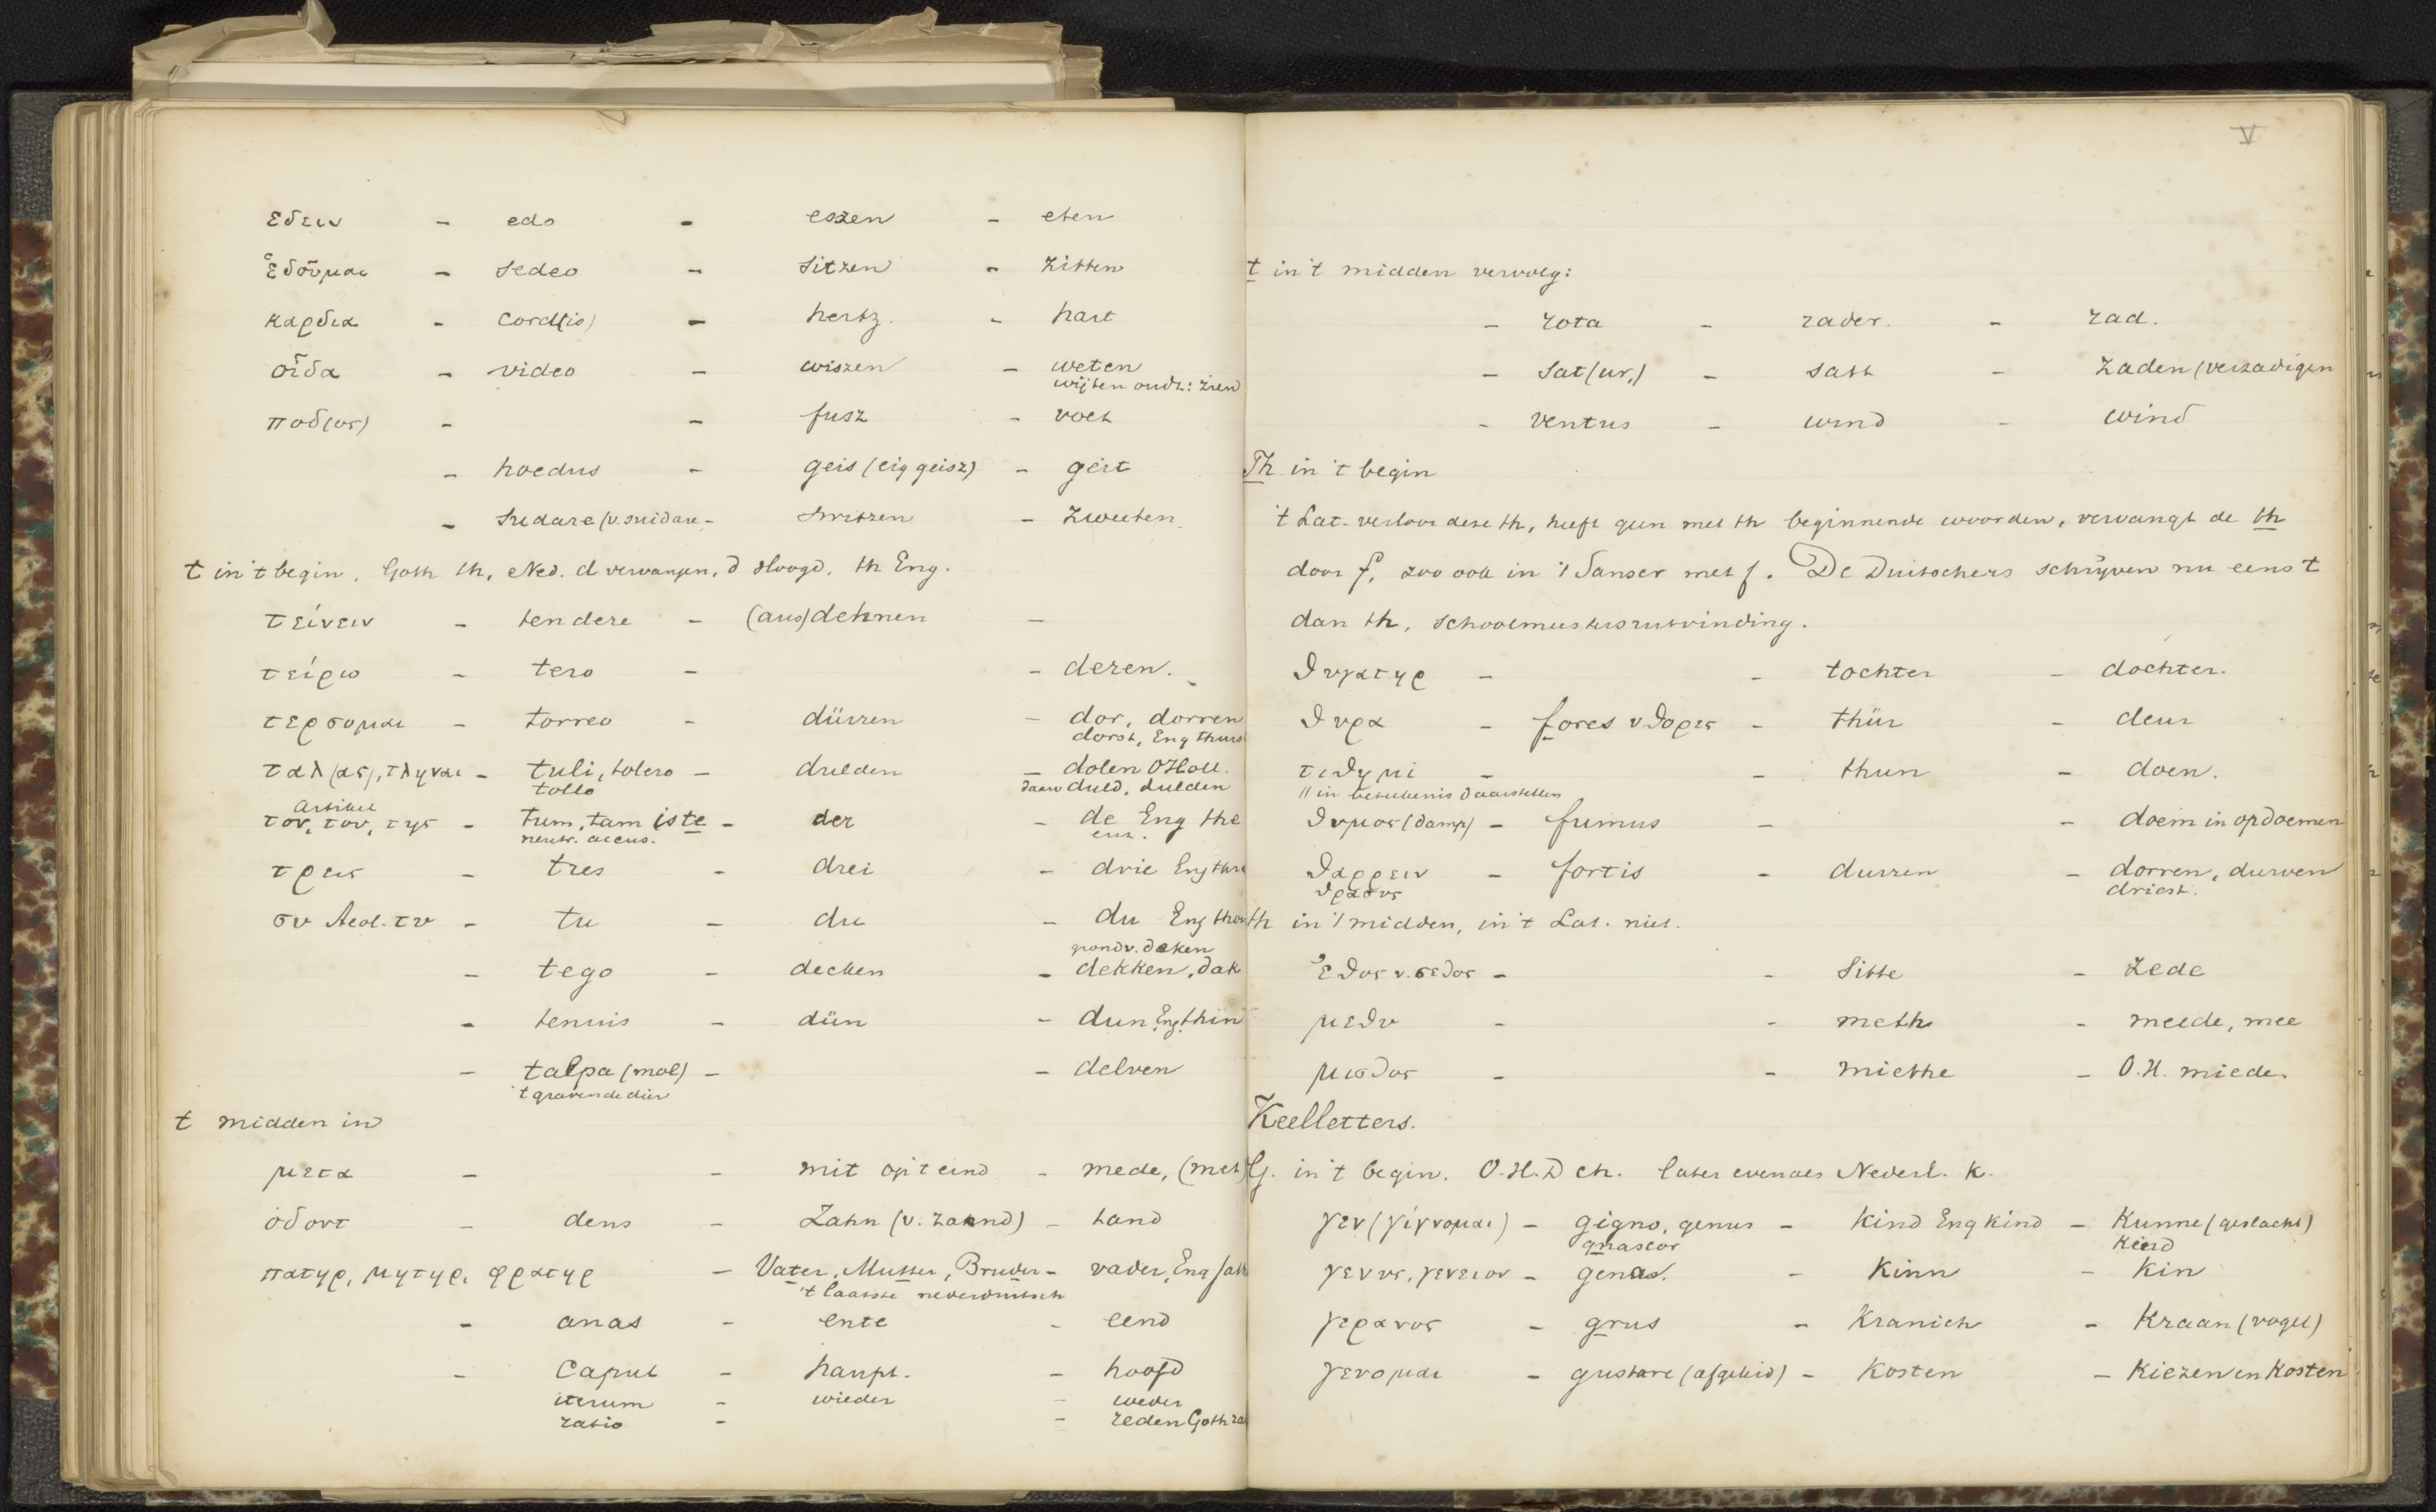 εδειν - edo - eszen - eten
ἑδοῦμαι - sedeo - sitzen - zitten
καρδια - cord(is) - hertz. - hart
οἶδα - video - wiszen - weten
wijten oudt: zien
ποδ(ος) - - fusz - voet
- hoedus - geis (eig geisz) - geit
- sudare (v. suidare - switzen - zweeten
t in 't begin. Goth th, Ned. d vervangen, d Hoogd. th Eng.
τείνειν - tendere - (aus)dehnen -
τείρω - tero - - deren.
τερσομαι - torreo - dürren - dor, dorren
dorst, Eng thurs
ταλ(ας), τληναι - tuli, tolero - dulden - dolen OHoll.
tollo daarv duld, dulden
Artikel
τον, του, της - tum, tam iste - der - de Eng the
neutr. accus. enz.
τρεις - tres - drei - drie Eng thre
συ Aeol. τυ - tu - du - du Eng thou
grondv. deken
- tego - decken - dekken, dak
- tenuis - dün - dun Eng. thin
- talpa (mol) - - delven
't gravende dier
t midden in
μετα - - mit op 't eind - mede, (met)
ὀδοντ - dens - Zahn (v. zahnd) - tand
πατηρ, μητηρ, φρατηρ - Vater, Mutter, Bruder - vader, Eng fath
't laatste nederduitsch
- anas - ente - eend
- Caput - haupt. - hoofd
iterum - wieder - weder
ratio - - reden Goth ra
V
t in 't midden vervolg:
- rota - rader. - rad.
- sat(ur,) - satt - zaden (verzadigen
- ventus - wind - wind
Th in 't begin
't Lat. verloor deze th, heeft geen met th beginnende woorden, vervangt de th
door f, zoo ook in 't Sanscr met f. De Duitschers schrijven nu eens t
dan th, schoolmeestersuitvinding.
θυγατηρ - - tochter - dochter.
θυρα - fores v θορες - thür - deur
τιθημι - - thun - doen.
// in beteekenis daarstellen
θυμος (damp) - fumus - - doem in opdoemen
θαρρειν - fortis - durren - dorren, durven
θρασυς driest.
th in 't midden, in 't Lat. niet.
ἐθος v. σεθος - - Sitte - zede
μεθυ - - meth - meede, mee
μισθος - - miethe - O.H. miede.
Keelletters.
G. in 't begin. O.H.D ch. later evenals Nederl. k.
γεν (γίγνομαι) - gigno, genus - Kind Eng kind - Kunne (geslacht)
gnascor Kind
γενυς, γενειον - genas. - Kinn - Kin
γερανος - grus - Kranich - Kraan (vogel)
γευομαι - gustare (afgeleid) - Kosten - Kiezen en Kosten